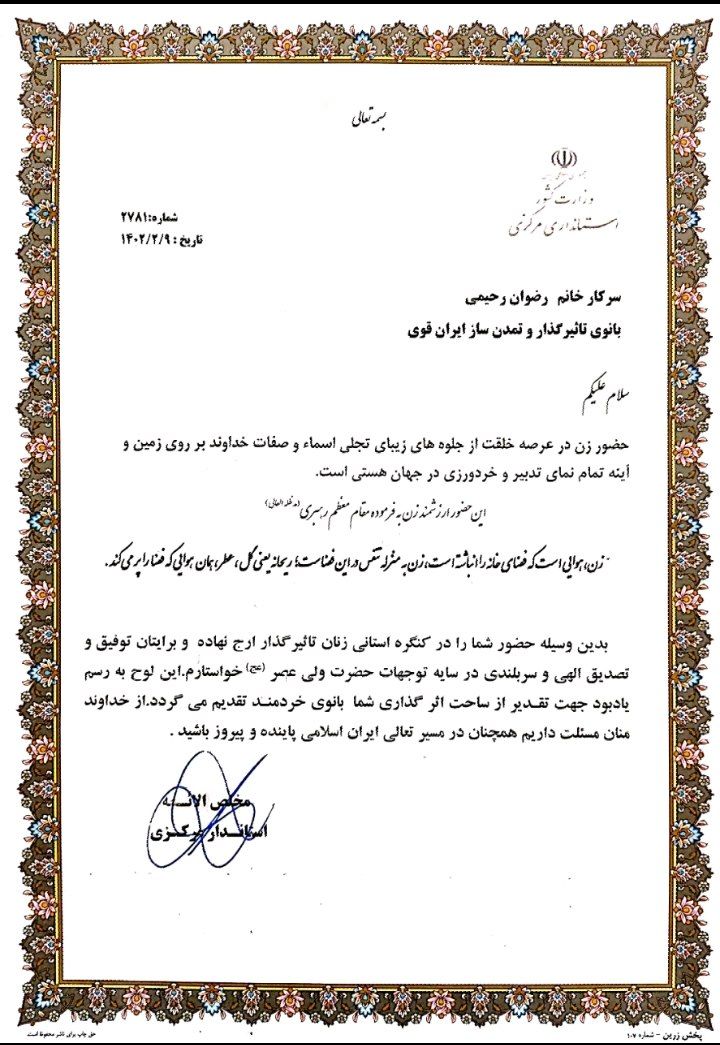 بسمه تعالی
وزارت کشور
استانداری مرکزی
شماره:۲۷۸۱
تاریخ : ۱۴۰۲/۲/۹
سرکار خانم رضوان رحیمی
بانوی تاثیرگذار و تمدن ساز ایران قوی
سلام علیکم
حضور زن در عرصه خلقت از جلوه های زیبای تجلی اسماء و صفات خداوند بر روی زمین و
آینه تمام نمای تدبیر و خردورزی در جهان هستی است.
این حضور ارزشمند زن به فرموده مقام معظم رهبری (مدظله العالی)
"زن، هوایی است که فضای خانه را انباشته است، زن به منزله تنفس در این فضاست؛ ریحانه یعنی گل، عطر، همان هوایی که فضا را پر می کند.
بدین وسیله حضور شما را در کنگره استانی زنان تاثیرگذار ارج نهاده و برایتان توفیق و
تصدیق الهی و سربلندی در سایه توجهات حضرت ولی عصر (عج) خواستارم.این لوح به رسم
یادبود جهت تقدیر از ساحت اثر گذاری شما بانوی خردمند تقدیم می گردد.از خداوند
منان مسئلت داریم همچنان در مسیر تعالی ایران اسلامی پاینده و پیروز باشید .
مخلص الائمه
استاندار مرکزی
پخش زرین - شماره ۱۰۷
حق چاپ برای ناشر محفوظ است